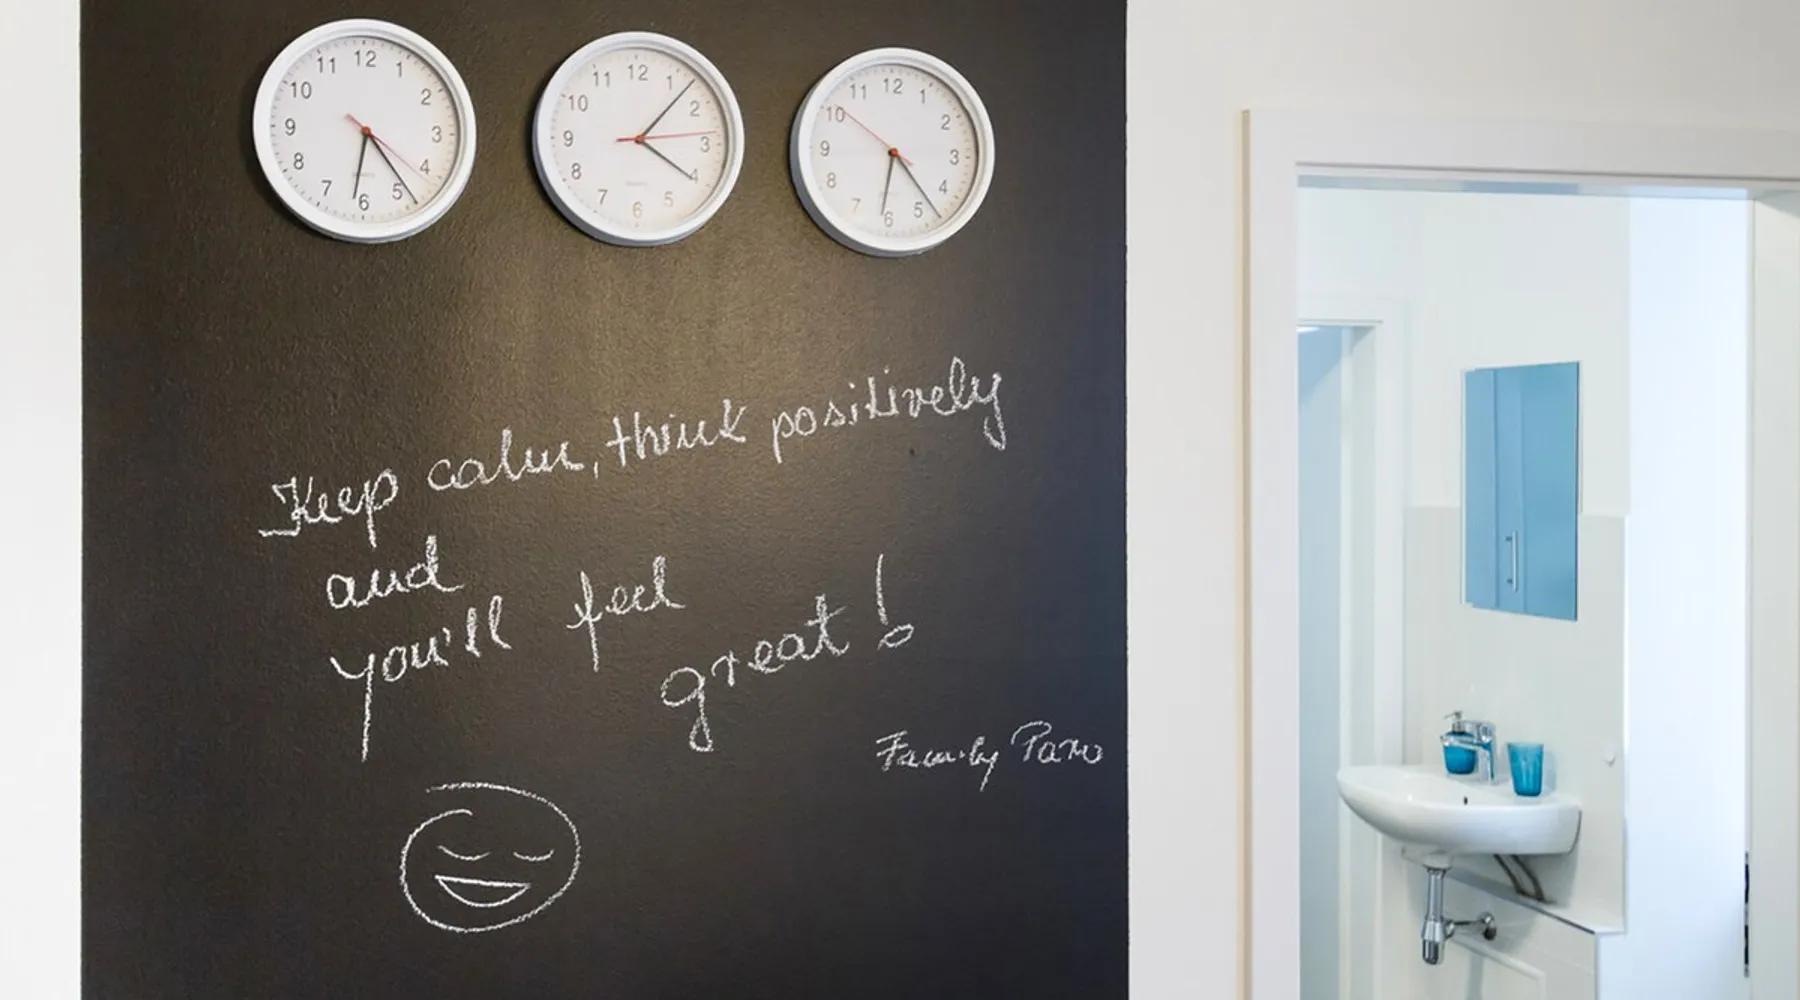 12 1 2 3 4 5 6 7 8 9 10 11
12 1 2 3 4 5 6 7 8 9 10 11
12 1 2 3 4 5 6 7 8 9 10 11
Keep calm, think positively
and
you'll feel
great!
Family